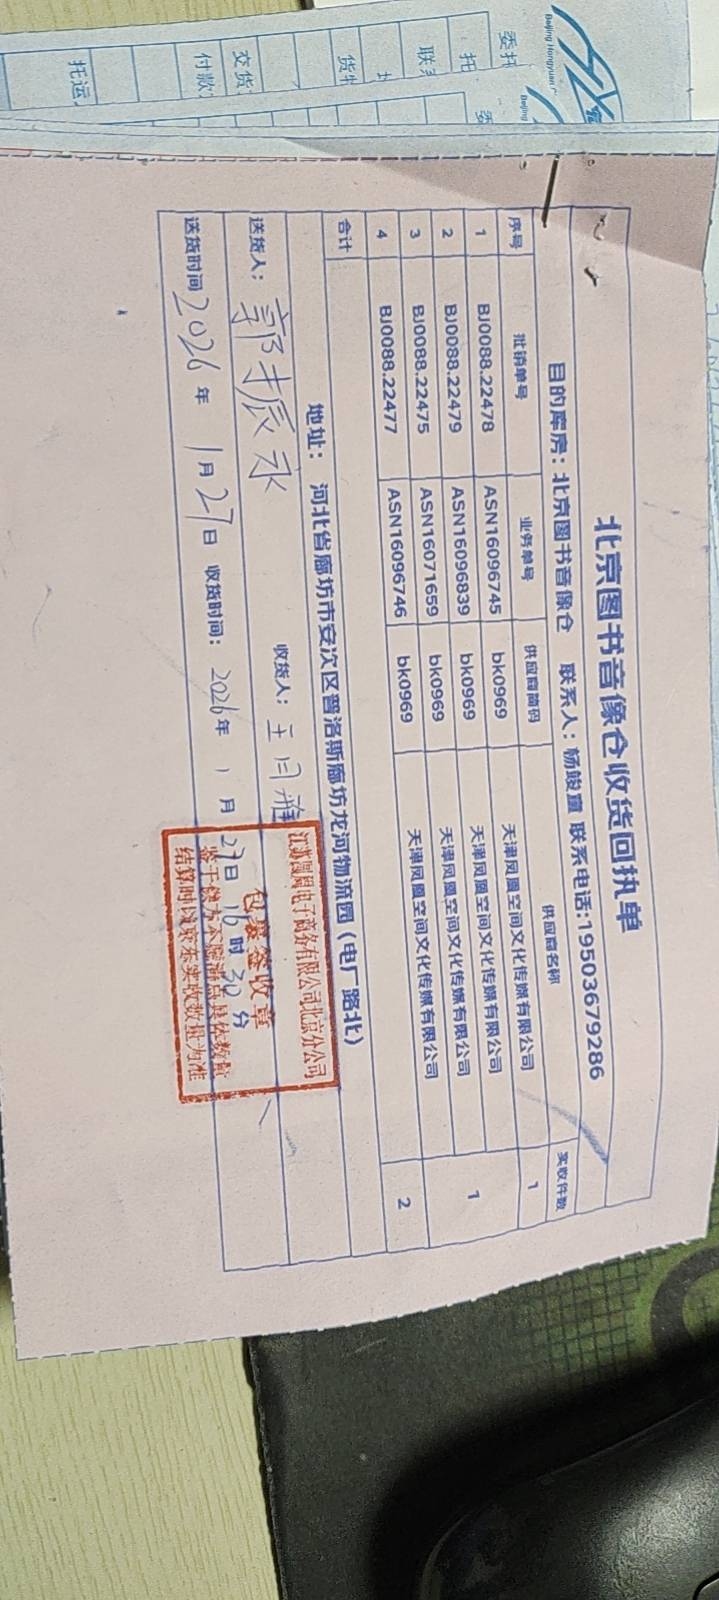 北京图书音像仓收货回执单
目的库房：北京图书音像仓 联系人：杨竣童 联系电话:19503679286
序号 批销单号 业务单号 供应商简码 供应商名称 实收件数
1 BJ0088.22478 ASN16096745 bk0969 天津凤凰空间文化传媒有限公司 1
2 BJ0088.22479 ASN16096839 bk0969 天津凤凰空间文化传媒有限公司 1
3 BJ0088.22475 ASN16071659 bk0969 天津凤凰空间文化传媒有限公司
4 BJ0088.22477 ASN16096746 bk0969 天津凤凰空间文化传媒有限公司 2
合计
地址： 河北省廊坊市安次区普洛斯廊坊龙河物流园（电厂路北）
送货人： 郭振永 收货人：
送货时间 2026 年 1 月 27 日 收货时间： 2026 年 1 月 27 日 16 时 30 分
电子商务有限公司北京分公司
包裹签收章
结算时以京东实收数量为准
Beijing Hongyuan
委托
托
联系
货物
交货
付款
托运
Beijing